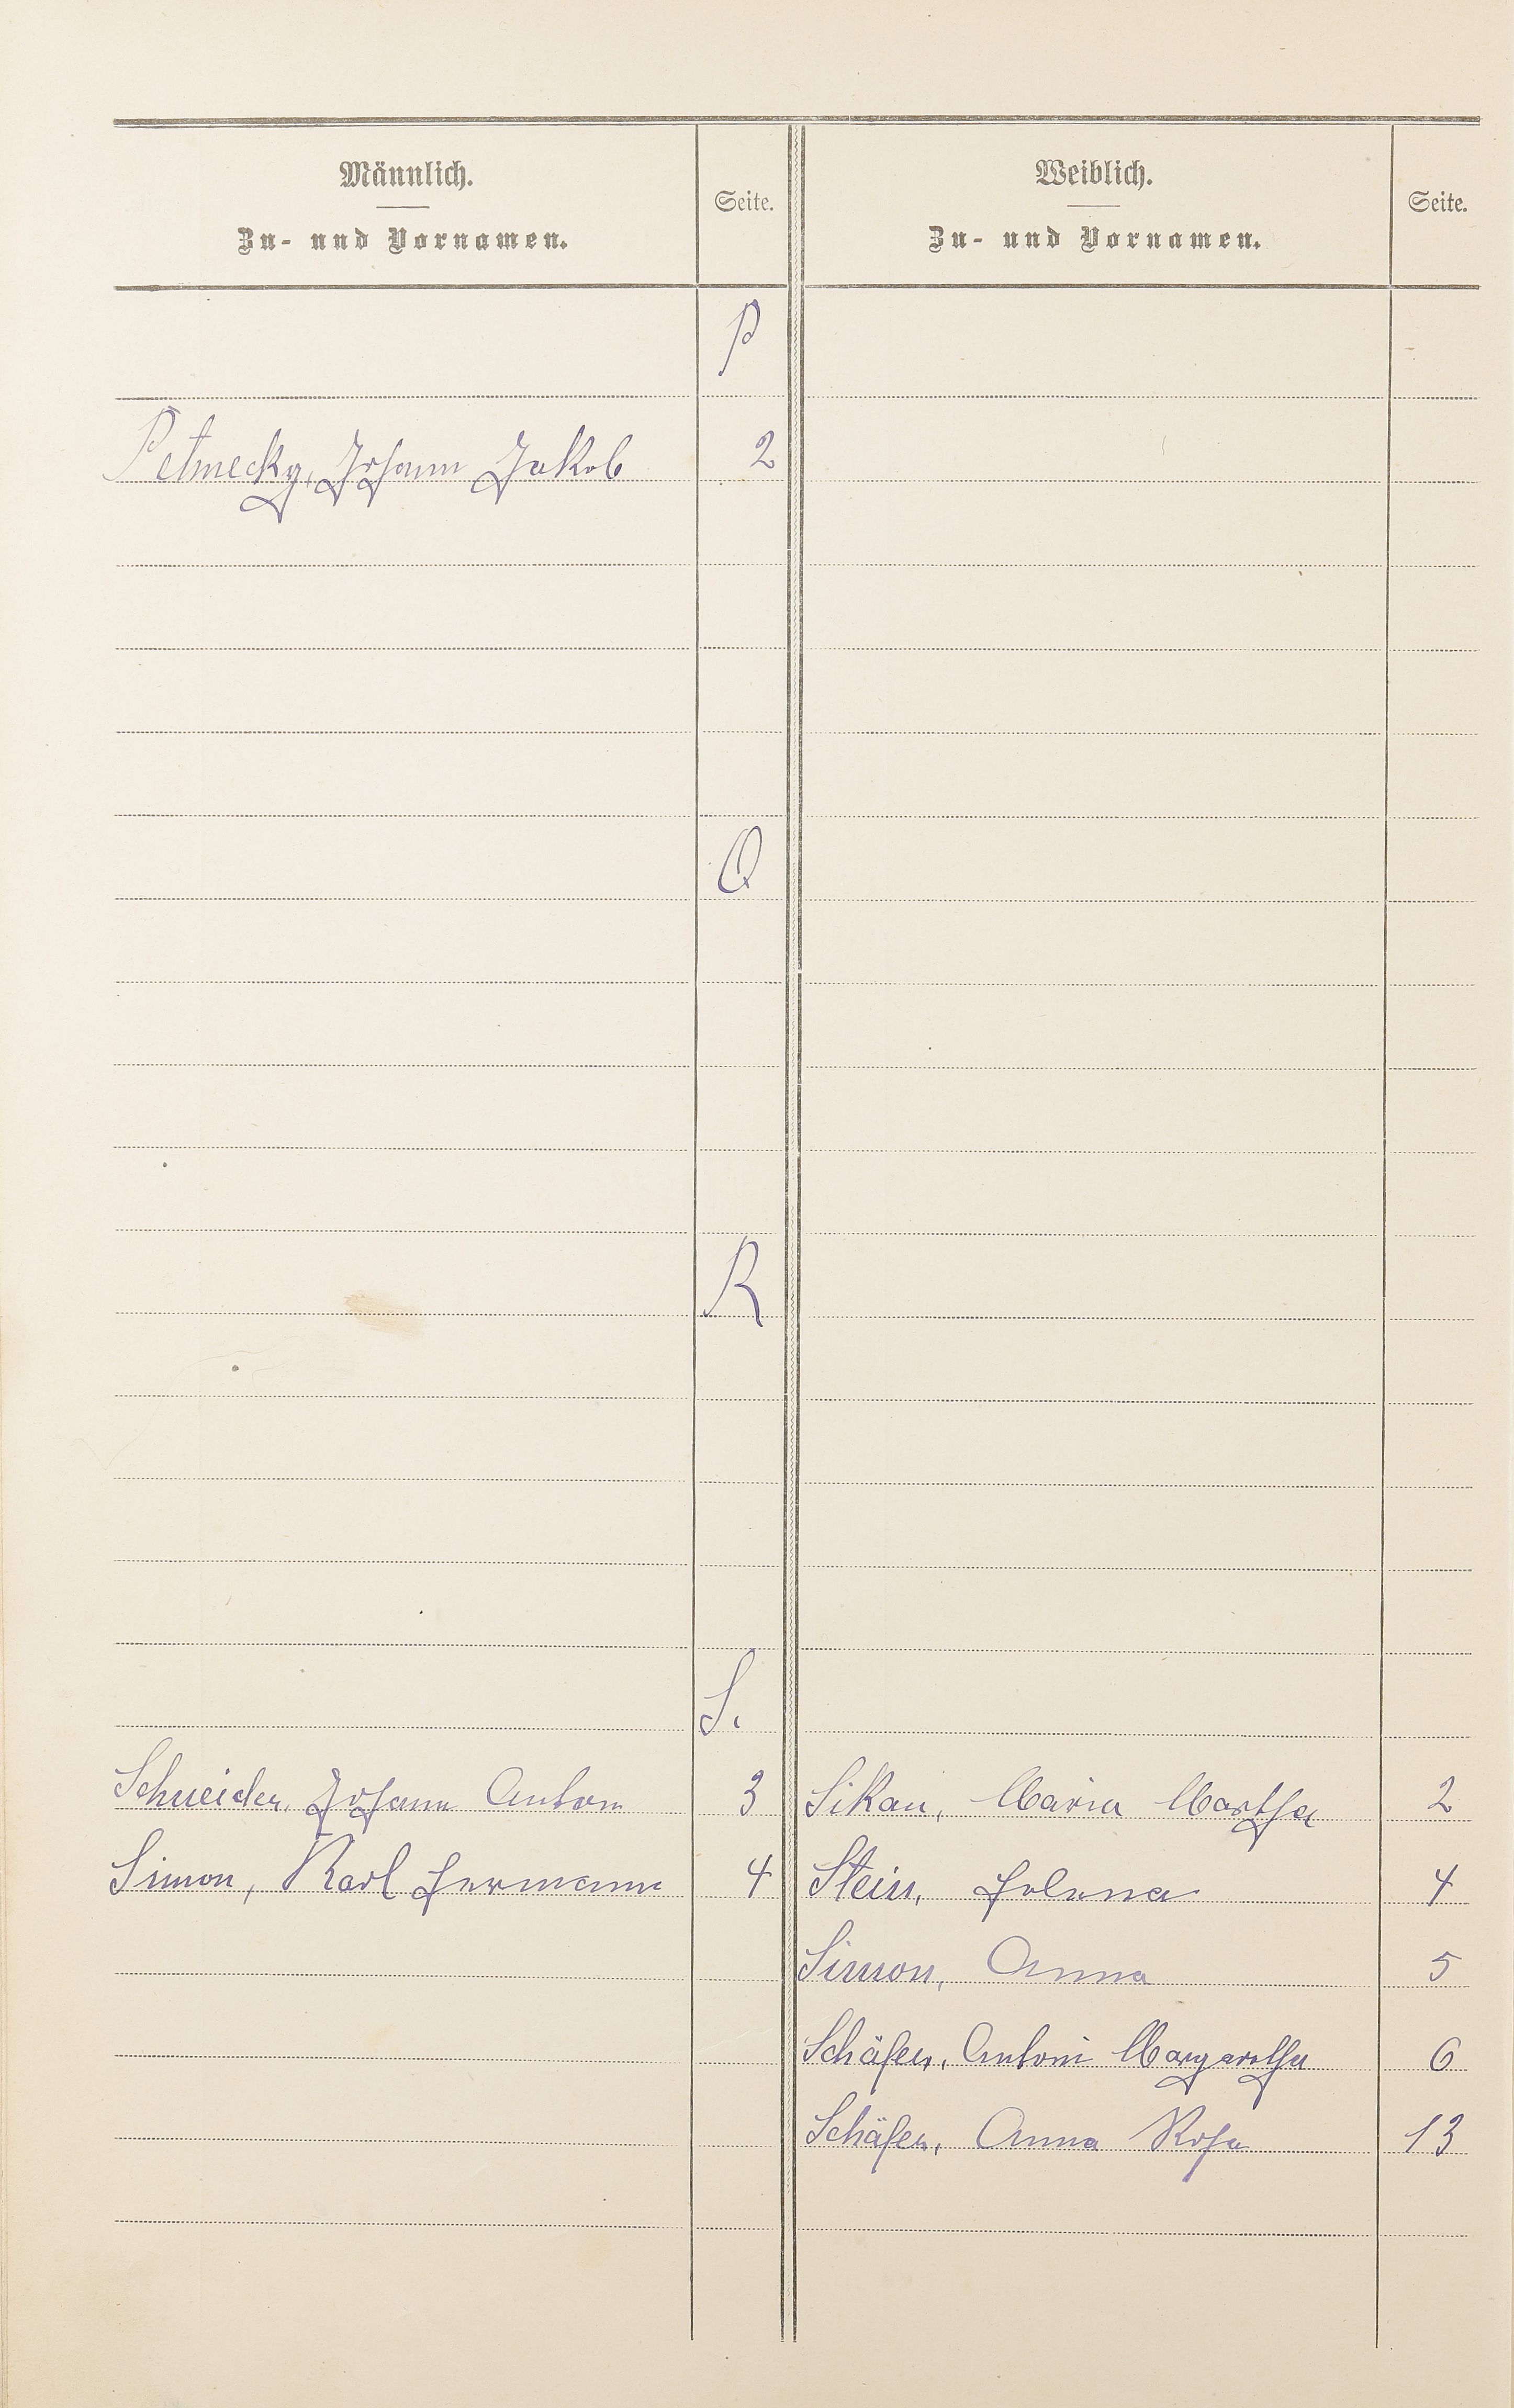 Männlich.
Zu- und Vornamen.
Seite.
Weiblich.
Zu- und Vornamen.
Seite.
P
Petmecky, Johann Jakob 2
Q
R
S.
Schneider, Johann Anton 3 Sikau, Maria Martha 2
Simon, Karl Hermann 4 Stein, Helena 4
Simon, Anna 5
Schäfer, Antoni Margaretha 6
Schäfer, Anna Rosa 13